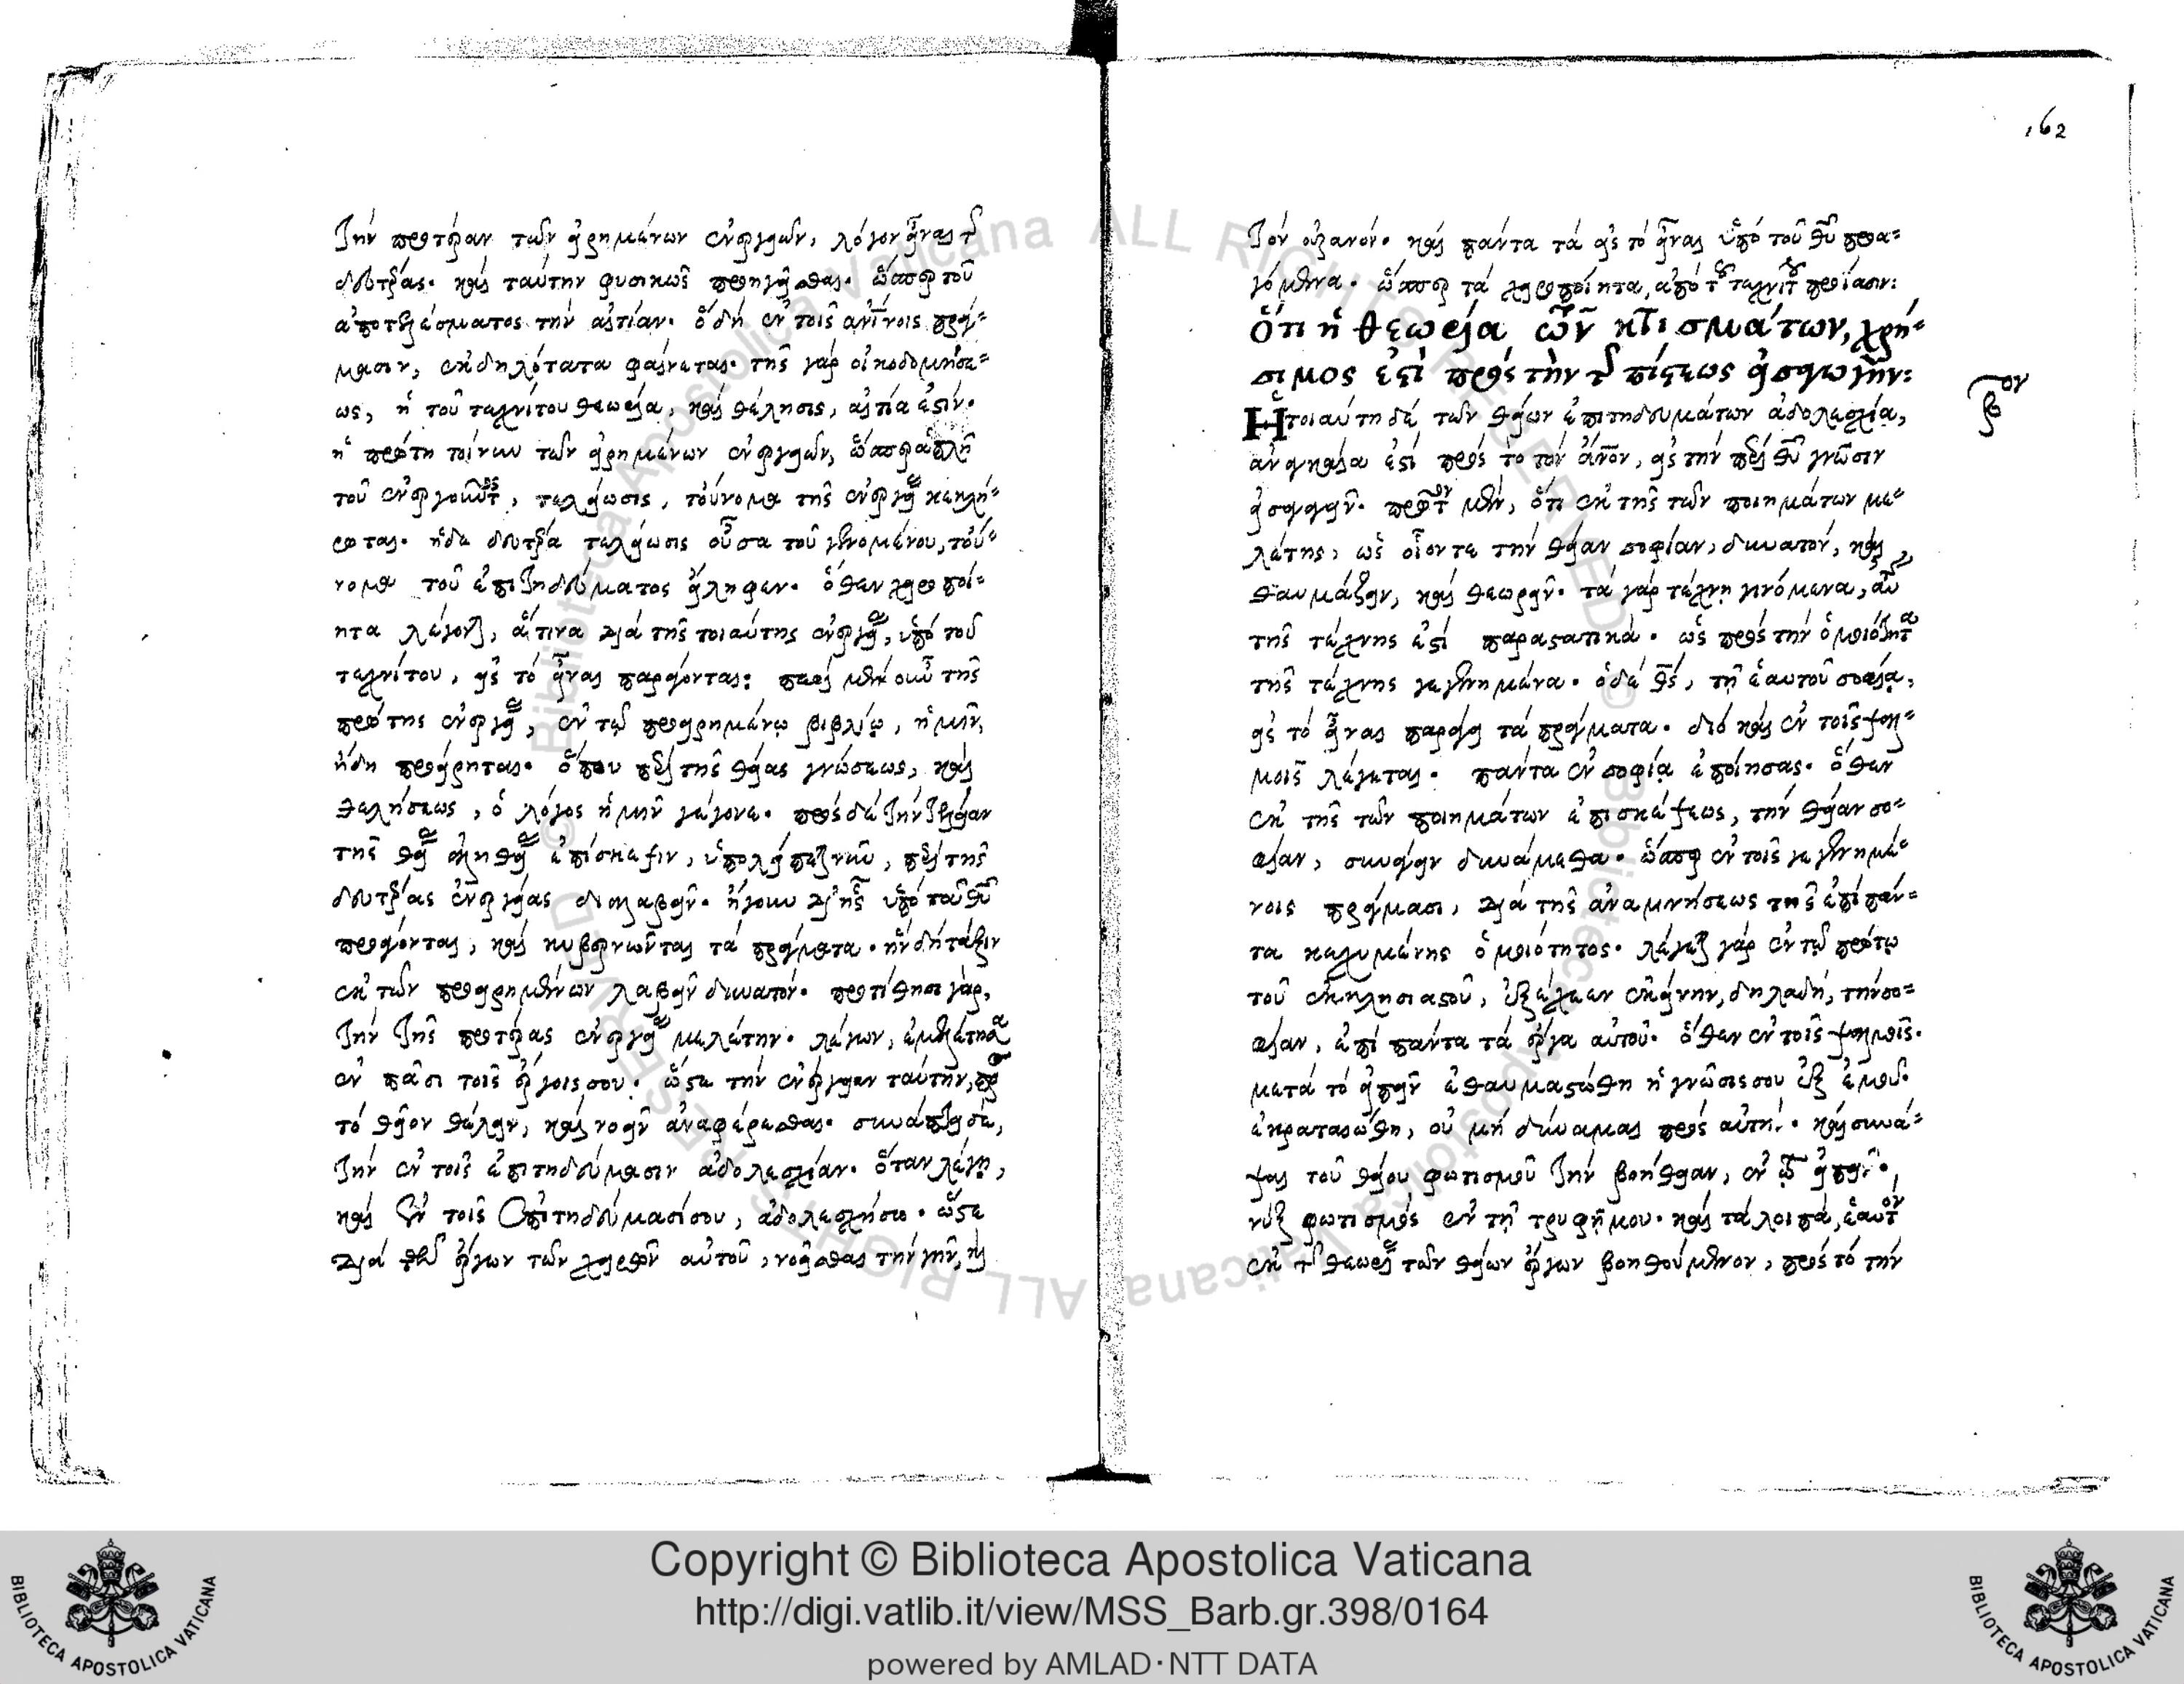 τὴν προτέραν τῶν εἰρημένων ἐνεργειῶν, λόγον εἶναι τῆς
δευτέρας. καὶ ταύτην φυσικῶς προηγεῖσθαι. ὥσπερ τοῦ
ἀποτελέσματος τὴν αἰτίαν. ὃ δὴ ἐν τοῖς ἀνίνοις πράγ=
μασιν, ἐκδηλότατα φαίνεται. τῆς γὰρ οἰκοδομήσε=
ως, ἡ τοῦ τεχνίτου θεωρία, καὶ θέλησις, αἰτία ἐστίν.
ἡ πρώτη τοίνυν τῶν εἰρημένων ἐνεργειῶν, ὥσπερ ἁπλῆ
τοῦ ἐνεργοῦντος, τελείωσις, τοὔνομα τῆς ἐνεργείας κεκλή=
ρωται. ἡ δὲ δευτέρα τελείωσις οὖσα τοῦ γινομένου, τοὔ=
νομα τοῦ ἐπιτηδεύματος εἴληφεν. ὅθεν χειροποί=
ητα λέγονται, ἅτινα διὰ τῆς τοιαύτης ἐνεργείας, ὑπὸ τοῦ
τεχνίτου, εἰς τὸ εἶναι παράγονται: περὶ μὲν οὖν τῆς
πρώτης ἐνεργείας, ἐν τῷ προειρημένῳ βιβλίῳ, ἡμῖν,
ἤδη προείρηται. ὅπου περὶ τῆς θείας γνώσεως, καὶ
θελήσεως, ὁ λόγος ἡμῖν γέγονε. πρὸς δὲ τὴν τελείαν
τῆς θείας ἀληθείας ἐπίσκεψιν, ὑπολείπεται νῦν, περὶ τῆς
δευτέρας ἐνεργείας διαλαβεῖν. ἤγουν δι' ἧς ὑπὸ τοῦ θῦ
προάγονται, καὶ κυβερνῶνται τὰ πράγματα. ἣν δὴ τάξιν
ἐκ τῶν προειρημένων λαβεῖν δυνατόν. προτίθησι γὰρ,
τὴν τῆς προτέρας ἐνεργείας μελέτην. λέγων, ἐμελέτησα
ἐν πᾶσι τοῖς ἔργοις σου. ὥστε τὴν ἐνέργειαν ταύτην, πρὸς
τὸ θεῖον θέλειν, καὶ νοεῖν ἀναφέρεσθαι. συνάπτει δὲ,
τὴν ἐν τοῖς ἐπιτηδεύμασιν ἀδολεσχίαν. ὅταν λέγῃ,
καὶ ἐν τοῖς ἐπιτηδεύμασί σου, ἀδολεσχήσω. ὥστε
διὰ τῶν ἔργων τῶν χειρῶν αὐτοῦ, νοεῖσθαι τὴν γῆν, καὶ
162
τὸν οὐρανόν. καὶ πάντα τὰ εἰς τὸ εἶναι ὑπὸ τοῦ θῦ προα=
γόμενα. ὥσπερ τὰ χειροποίητα, ἀπὸ τοῦ τεχνίτου προΐασιν:
Ὅτι ἡ θεωρία τῶν κτισμάτων, χρή=
σιμος ἐστὶ πρὸς τὴν τῆς πίστεως εἰσαγωγήν:
Ἡ τοιαύτη δὲ τῶν θείων ἐπιτηδευμάτων ἀδολεσχία,
ἀναγκαία ἐστὶ πρὸς τὸ τὸν ἄνον, εἰς τὴν περὶ θῦ γνῶσιν
εἰσαγαγεῖν. πρῶτον μὲν, ὅτι ἐκ τῆς τῶν ποιημάτων με=
λέτης, ὡς οἷόν τε τὴν θείαν σοφίαν, δυνατόν, καὶ
θαυμάζειν, καὶ θεωρεῖν. τὰ γὰρ τέχνῃ γινόμενα, αὐ
τῆς τέχνης ἐστὶ παραστατικά. ὡς πρὸς τὴν ὁμοιότητα
τῆς τέχνης γεγενημένα. ὁ δὲ θς, τῇ ἑαυτοῦ σοφίᾳ,
εἰς τὸ εἶναι παράγει τὰ πράγματα. διὸ καὶ ἐν τοῖς ψαλ=
μοῖς λέγεται. πάντα ἐν σοφίᾳ ἐποίησας. ὅθεν
ἐκ τῆς τῶν ποιημάτων ἐπισκέψεως, τὴν θείαν σο=
φίαν, συνάγειν δυνάμεθα. ὥσπερ ἐν τοῖς γεγενημέ=
νοις πράγμασι, διὰ τῆς ἀναμνήσεως τῆς ἐπὶ πάν=
τα κεχυμένης ὁμοιότητος. λέγεται γὰρ ἐν τῷ πρώτῳ
τοῦ ἐκκλησιαστοῦ, ἐξέχεεν ἐκείνην, δηλαδὴ, τὴν σο=
φίαν, ἐπὶ πάντα τὰ ἔργα αὐτοῦ. ὅθεν ἐν τοῖς ψαλμοῖς.
μετὰ τὸ εἰπεῖν ἐθαυμαστώθη ἡ γνῶσίς σου ἐξ ἐμοῦ.
ἐκραταιώθη, οὐ μὴ δύναμαι πρὸς αὐτήν. καὶ συνά=
ψας τοῦ θείου φωτισμοῦ τὴν βοήθειαν, ἐν ᾧ εἰπεῖν.
νὺξ φωτισμὸς ἐν τῇ τρυφῇ μου. καὶ τὰ λοιπά, ἑαυτὸν
ἐκ τῆς θεωρίας τῶν θείων ἔργων βοηθούμενον, πρὸς τὸ τὴν
Copyright © Biblioteca Apostolica Vaticana
http://digi.vatlib.it/view/MSS_Barb.gr.398/0164
powered by AMLAD·NTT DATA